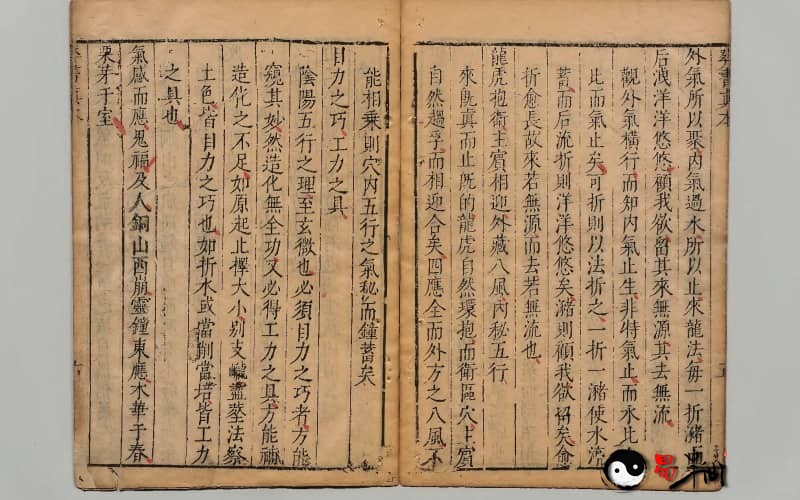 外氣所以聚內氣過水所以止來龍法每一折瀦而
后洩洋洋悠悠顧我欲留其來無源其去無流
觀外氣橫行而知內氣止生非特氣止而水比
比而氣止矣可折則以法折之一折一瀦使水流
蓄而后流折則洋洋悠悠矣瀦則顧我欲留矣愈
折愈長故來若無源而去若無流也
龍虎抱衛主賓相迎外藏八風內秘五行
來既真而止既的龍虎自然環抱而衛區穴主賓
自然趨孚而相迎合矣四應全而外方之八風不
能相乘則穴內五行之氣秘而鍾蓄矣
目力之巧工力之具
陰陽五行之理至玄微也必須目力之巧者方能
窺其妙然造化無全功又必得工力之具方能補
造化之不足如原起止擇大小別支壠盡塟法察
土色皆目力之巧也如折水或當削當培皆工力
之具也
氣感而應鬼福及人銅山西崩靈鐘東應木華于春
栗芽于室